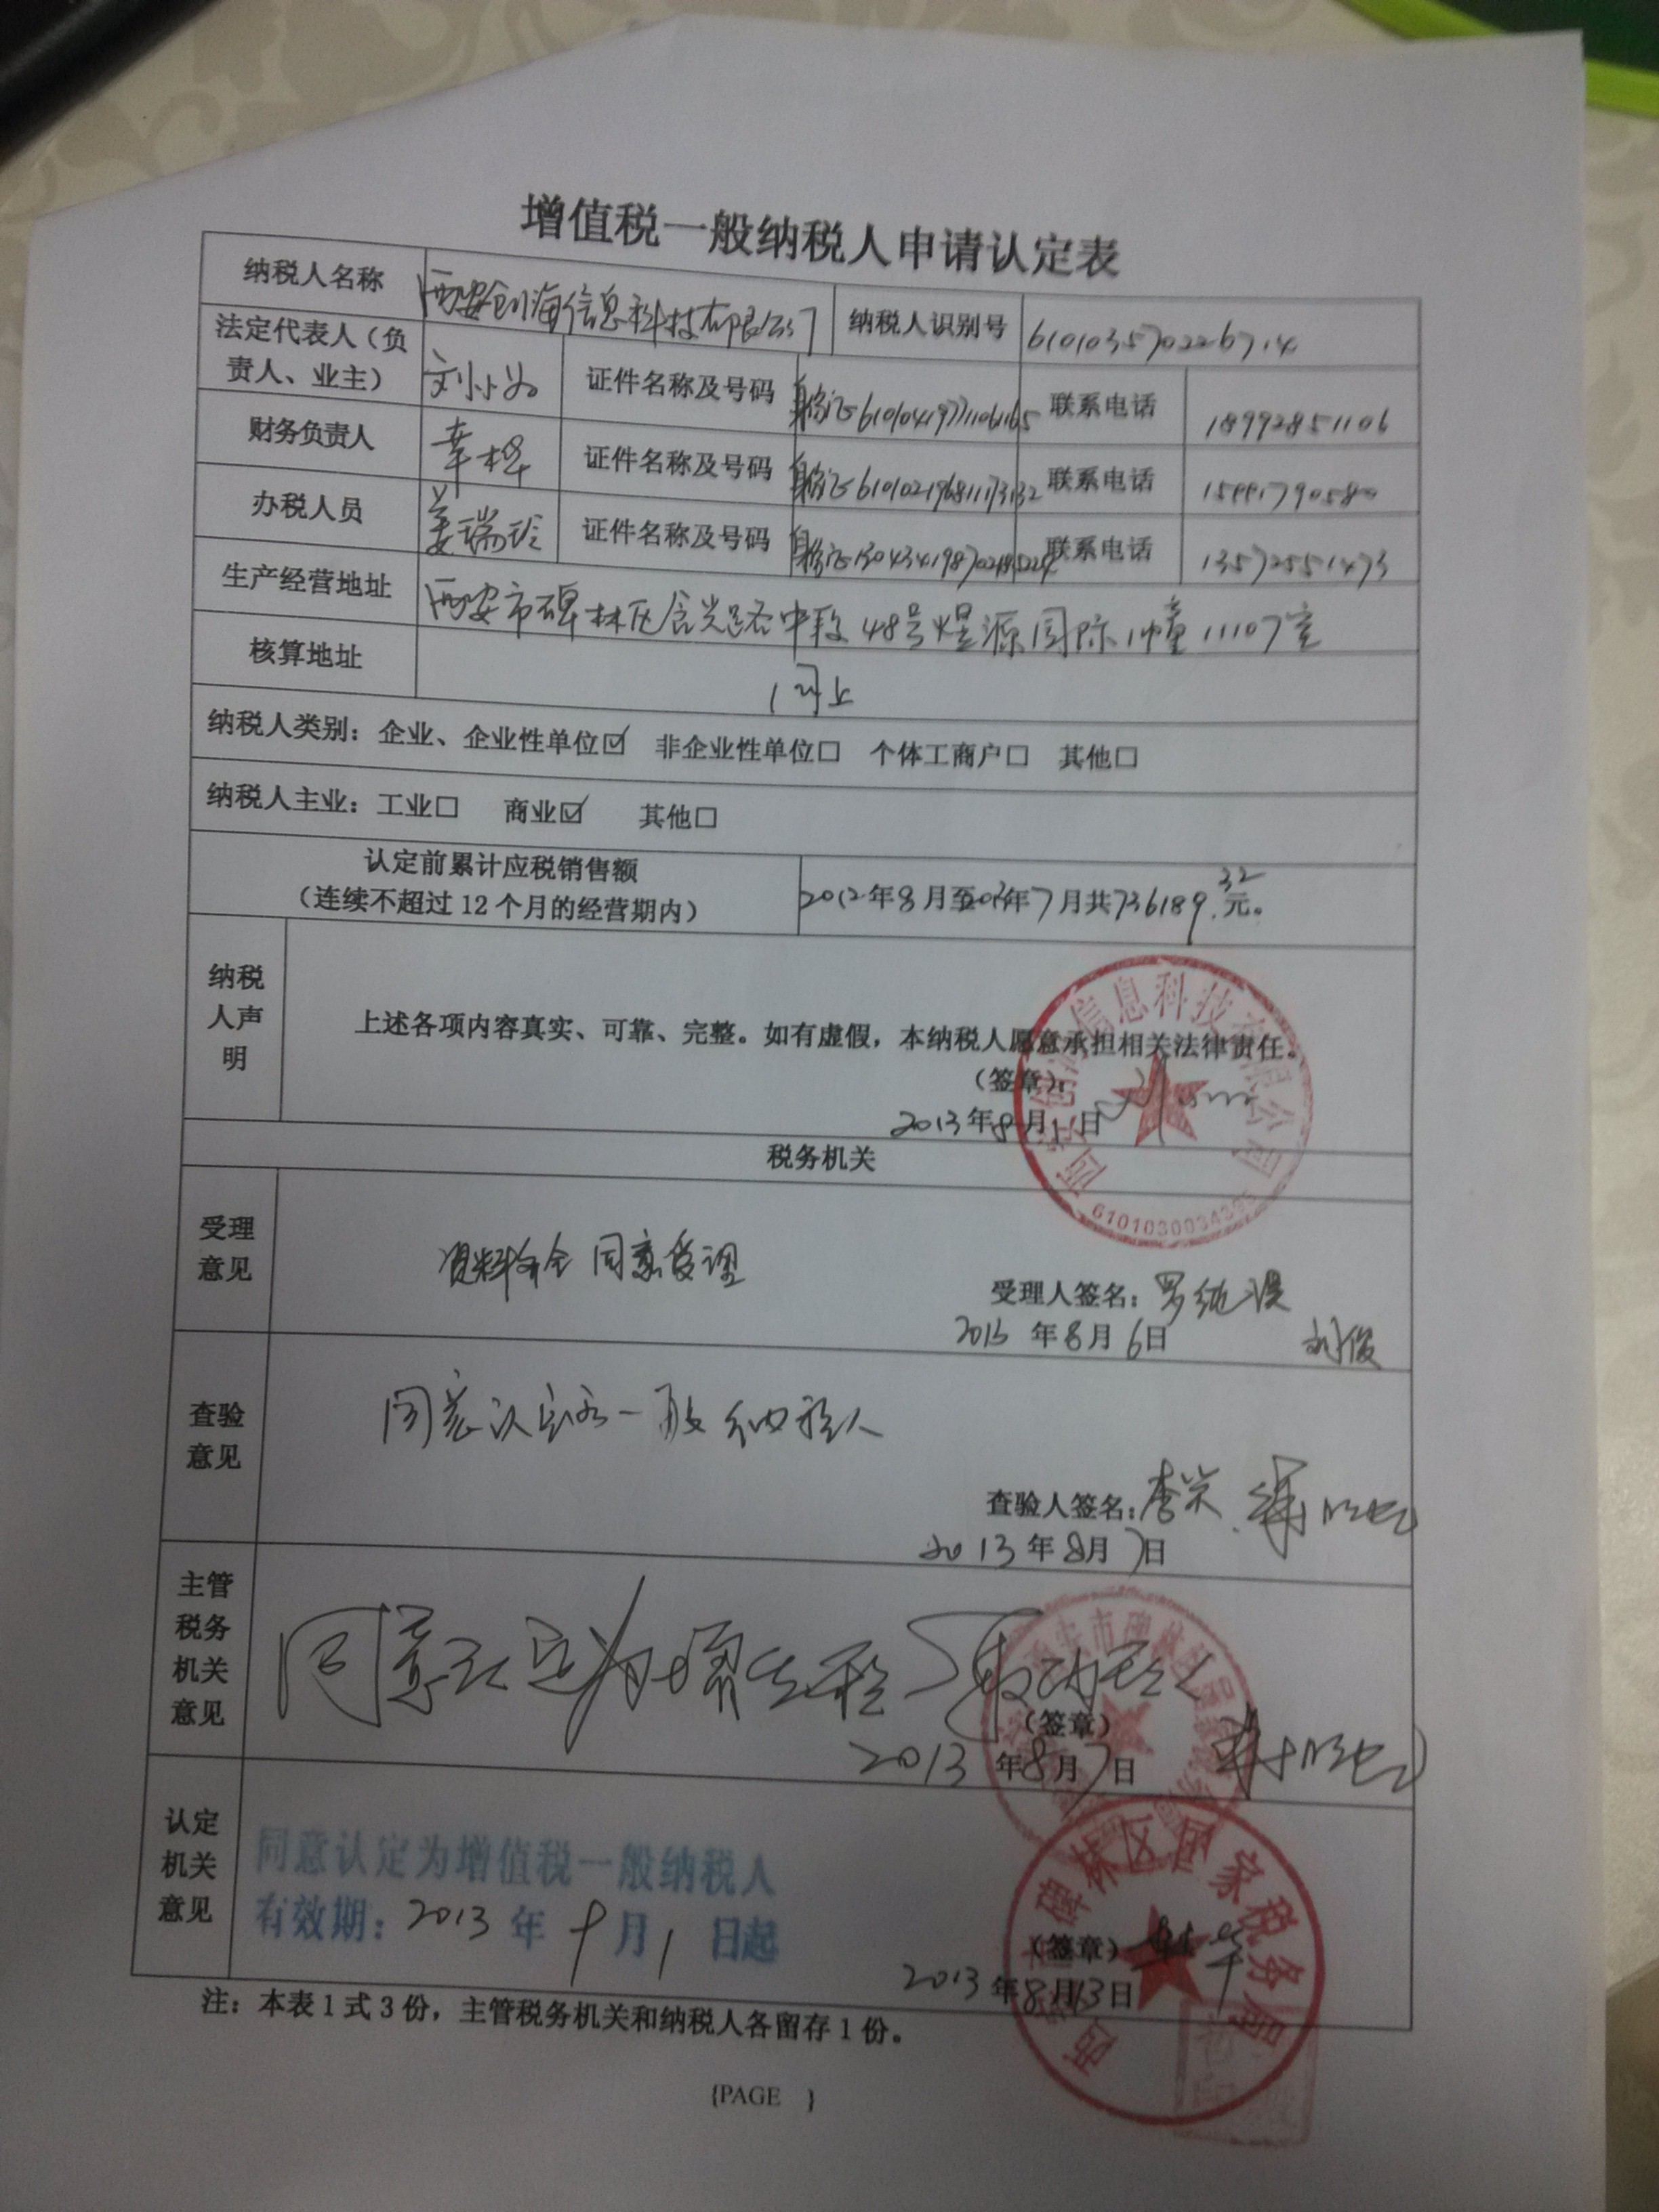 增值税一般纳税人申请认定表
纳税人名称 西安创海信息科技有限公司 纳税人识别号 610103570226714
法定代表人（负责人、业主） 证件名称及号码 身份证 联系电话 18992851106
财务负责人 证件名称及号码 身份证 联系电话
办税人员 姜瑞玲 证件名称及号码 身份证 联系电话 13572551473
生产经营地址 西安市碑林区含光路中段48号煜源国际1幢11107室
核算地址 同上
纳税人类别：企业、企业性单位☑ 非企业性单位□ 个体工商户□ 其他□
纳税人主业：工业□ 商业☑ 其他□
认定前累计应税销售额
（连续不超过12个月的经营期内） 2012年8月至2013年7月共736189.32元。
纳税人声明
上述各项内容真实、可靠、完整。如有虚假，本纳税人愿意承担相关法律责任。
（签章）：
2013年8月1日
税务机关
受理意见
资料齐全 同意受理
受理人签名：
2013年8月6日
刘俊
查验意见
同意认定为一般纳税人
查验人签名：
2013年8月7日
主管税务机关意见
同意认定为增值税一般纳税人
（签章）
2013年8月7日
认定机关意见
同意认定为增值税一般纳税人
有效期：2013年9月1日起
（签章）
2013年8月13日
注：本表1式3份，主管税务机关和纳税人各留存1份。
{PAGE }